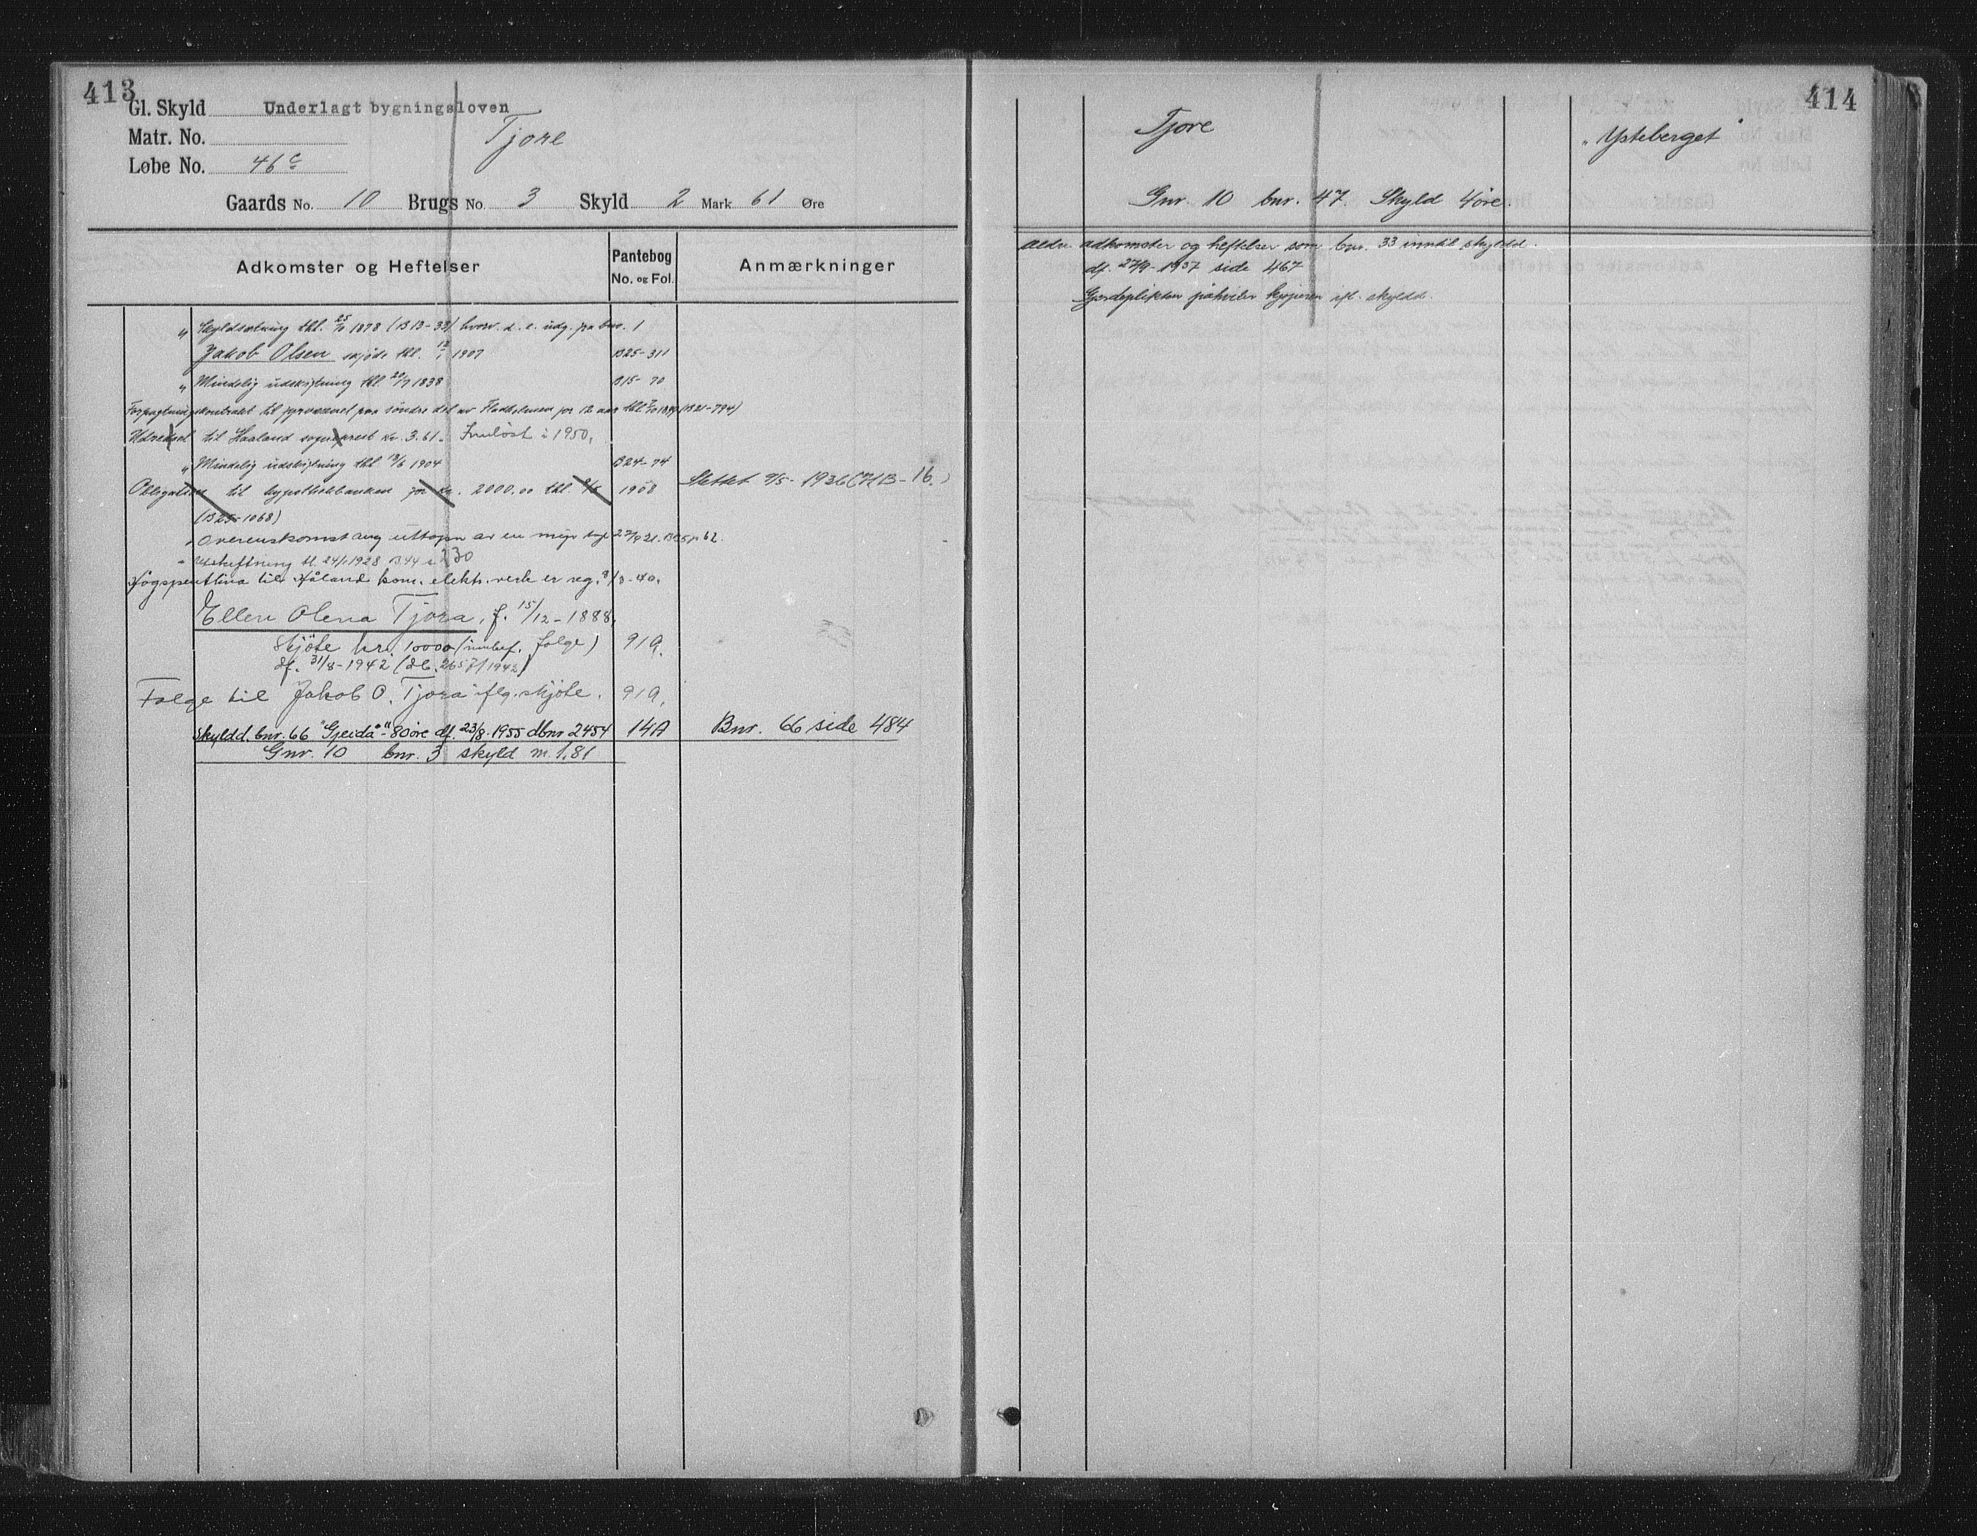 413
Gl. Skyld Underlagt bygningsloven
Matr. No.
Tjore
Løbe No. 46 c
Gaards No. 10 Brugs No. 3 Skyld 2 Mark 61 Øre
Adkomster og Heftelser Pantebog No. og Fol. Anmærkninger
" Skyldsætning thl. 1878 (B13-33) hvorv. d. e. udg. fra bnr. 1
Jakob Olsen skjøde thl. 1907 B25-311
" Mindelig udskiftning thl. 20/7 1838 B15-70
til fyrvæsenet paa søndre del av for 12 aar thl. (B21-794)
Udredsel til Haaland sogneprest kr. 3.61. Innløst i 1950.
" Mindelig udskiftning thl 1904 B24-74
Obligation til hypothekbanken for kr. 2000.00 thl. 1908 Slettet 1936 (B-16.)
(B25-1068)
" Overenskomst ang uttapn av en myr
" Utskiftning tl. 24/1 1928 B44 s 230
Høgspentlina til Håland kom. elektr. verk er reg. -40.
Ellen Olena Tjora, f. 15/12-1888,
Skjöte kr. 10000 (innbef. folge) 919.
df. 31/8-1942 (db. 2657/1942)
Folge til Jakob O. Tjora iflg. skjöte. 919.
Skyldd. bnr. 66 "Gjeidå" - 80 öre df. 23/8. 1955 dbnr 2454 14A Bnr. 66 side 484
Gnr. 10 bnr. 3 skyld m. 1.81
414
Tjore "Ysteberget"
Gnr. 10 bnr. 47. Skyld 4 øre.
Aldre adkomster og heftelser som bnr. 33 inntil skyldd.
df. 27/9-1937 side 467
Gjerdeplikten påhviler kjøperen ifl. skyldd.